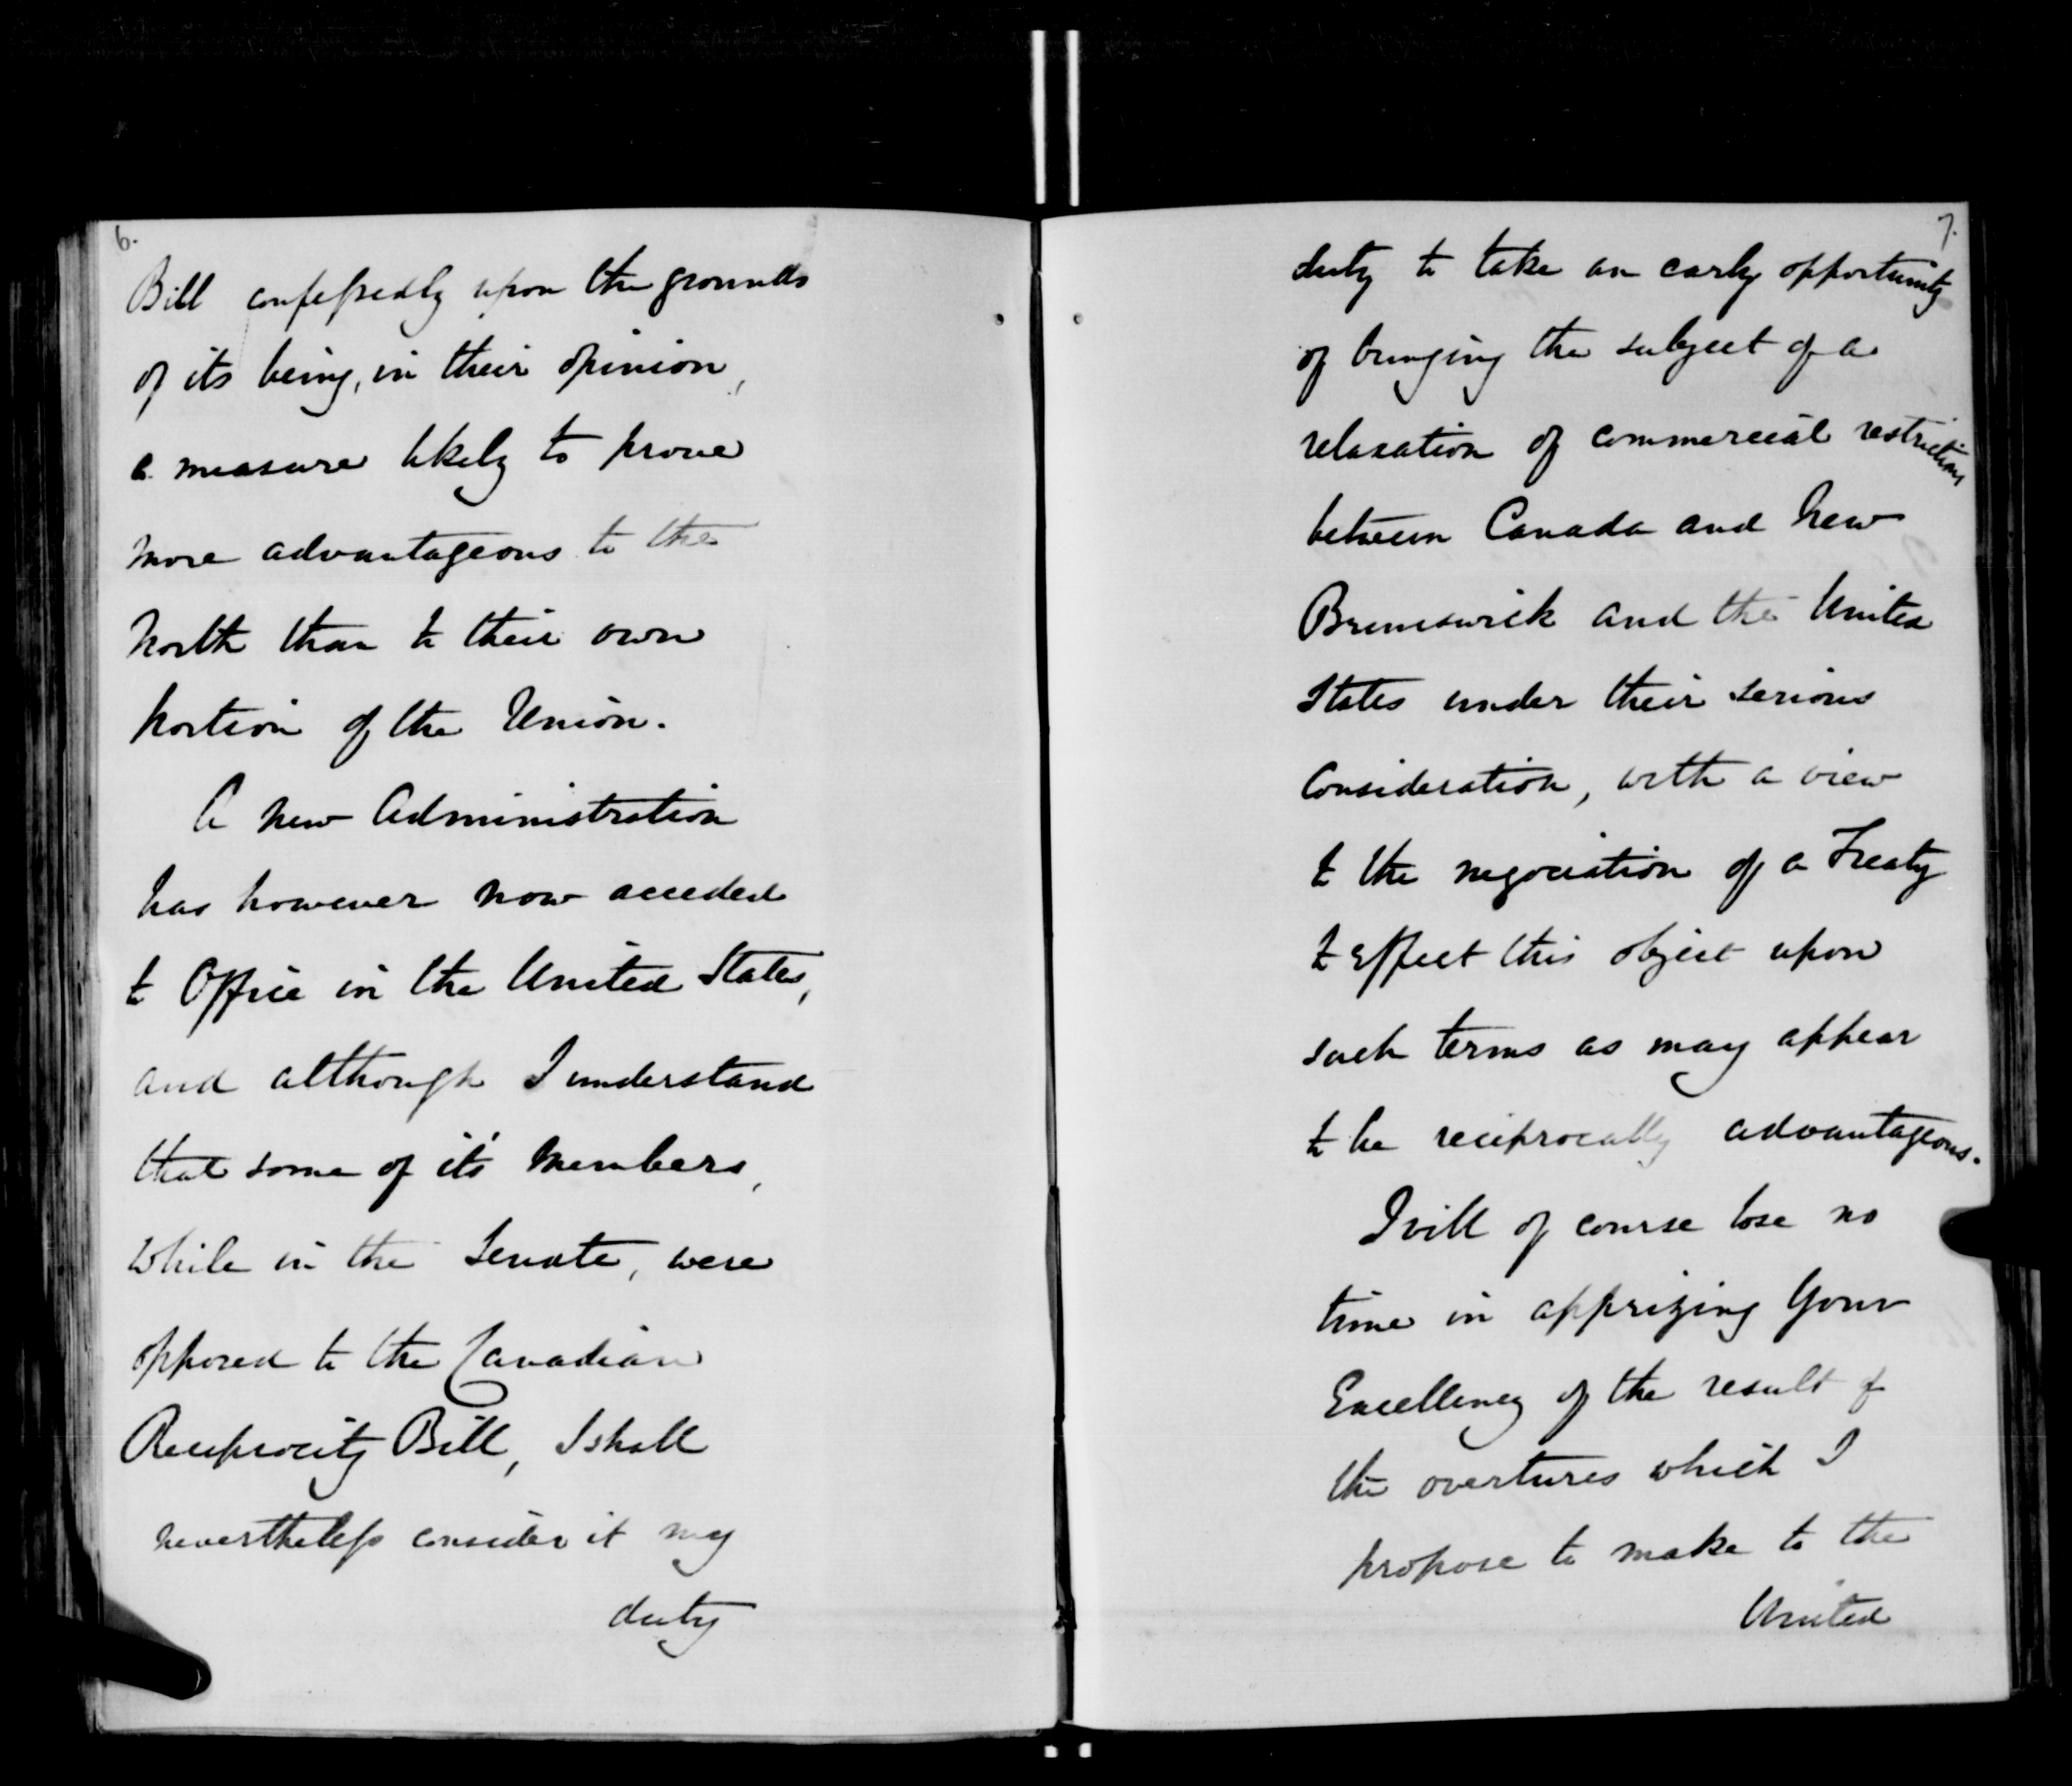 6.
Bill confessedly upon the grounds
of its being, in their opinion,
a measure likely to prove
more advantageous to the
North than to their own
portion of the Union.
A new Administration
has however now acceded
to Office in the United States,
and although I understand
that some of it's Members,
while in the Senate, were
opposed to the Canadian
Reciprocity Bill, I shall
nevertheless consider it my
duty
7.
duty to take an early opportunity
of bringing the subject of a
relaxation of commercial restrictions
between Canada and New
Brunswick and the United
States under their serious
Consideration, with a view
to the negociation of a Treaty
to effect this object upon
such terms as may appear
to be reciprocally advantageous.
I will of course lose no
time in apprizing Your
Excellency of the result of
the overtures which I
propose to make to the
United